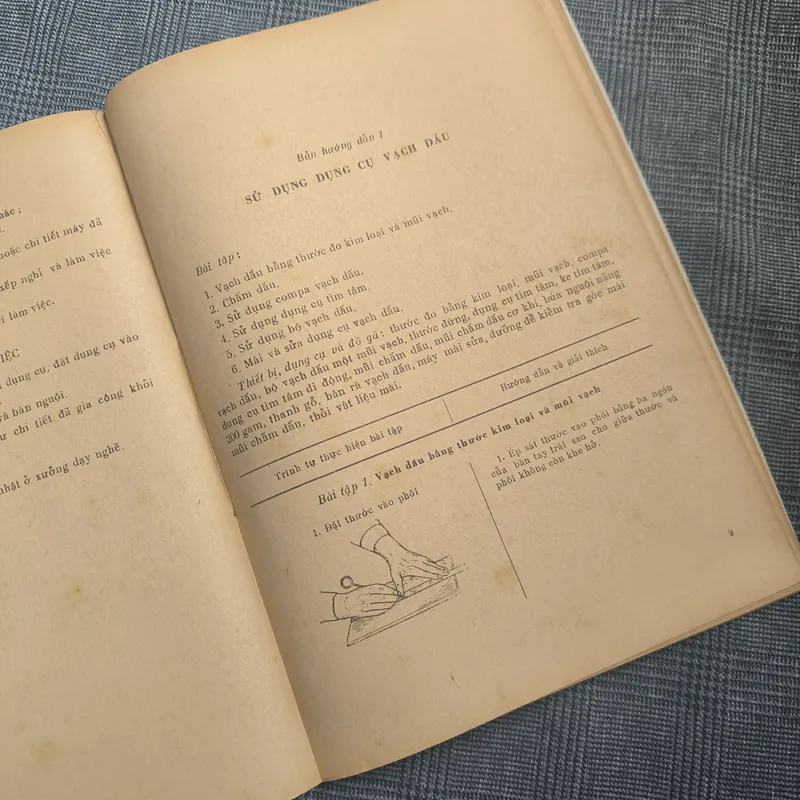 hác ;
hoặc chi tiết máy đã
xếp nghỉ và làm việc
i làm việc.
IỆC
dụng cụ, đặt dung cụ vào
và bàn nguội.
ư chi tiết đã gia công khỏi
nhật ở xưởng dạy nghề.
Bản hướng dẫn 1
SỬ DỤNG DỤNG CỤ VẠCH DẤU
Bài tập :
1. Vạch dấu bằng thước đo kim loại và mũi vạch.
2. Chấm dấu.
3. Sử dụng compa vạch dấu.
4. Sử dụng dụng cụ tìm tâm.
5. Sử dụng bộ vạch dấu.
6. Mài và sửa dụng cụ vạch dấu.
Thiết bị, dụng cụ và đồ gá : thước đo bằng kim loại, mũi vạch, compa
vạch dấu, bộ vạch dấu một mũi vạch, thước đứng, dụng cụ tìm tâm, ke tìm tâm,
dụng cụ tìm tâm di động, mũi chấm dấu, mũi chấm dấu cơ khí, búa nguội nặng
200 gam, thanh gỗ, bàn rà vạch dấu, máy mài sửa, dưỡng để kiểm tra góc mài
mũi chấm dấu, thỏi vật liệu mài.
Trình tự thực hiện bài tập
Hướng dẫn và giải thích
Bài tập 1. Vạch dấu bằng thước kim loại và mũi vạch
1. Đặt thước vào phôi
1. Ép sát thước vào phôi bằng ba ngón
của bàn tay trái sao cho giữa thước và
phôi không còn khe hở.
9